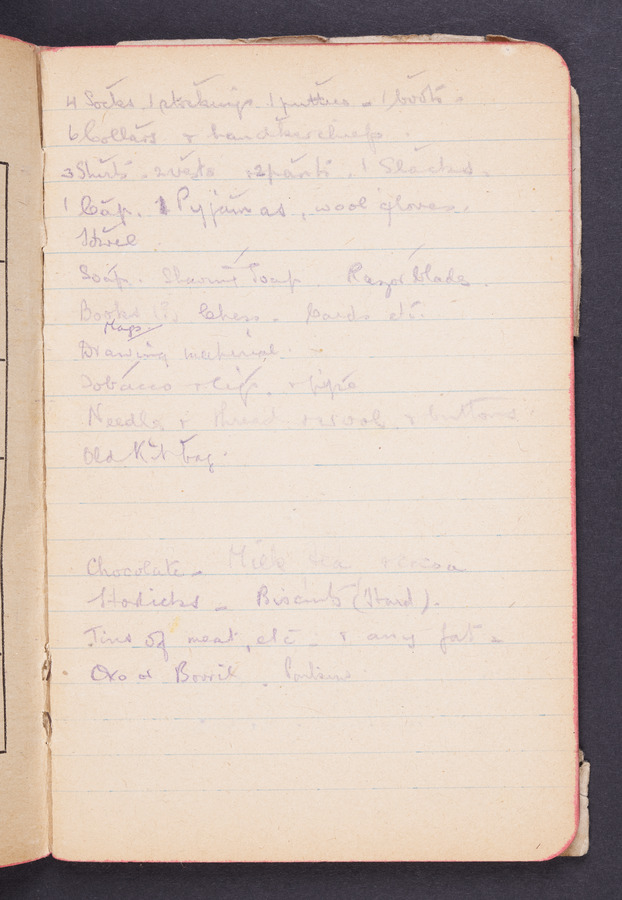 4 Socks. 1 stockings. 1 puttees - 1 boots -
6 Collars + handkerchiefs.
3 Shirts. 2 vests + 2 pants. 1 Slacks.
1 Cap. 1 Pyjamas, wool gloves,
Soap. Shaving Soap. Razor blades.
Books (?). Chess. Cards etc.
Maps.
Drawing material. -
Tobacco + cigs. + pipe
Needles + thread + wool + buttons
Old Kit bag.
Chocolate - Milk tea + cocoa
Horlicks - Biscuits (Hard).
Tins of meat, etc - + any fat -
Oxo or Bovril.